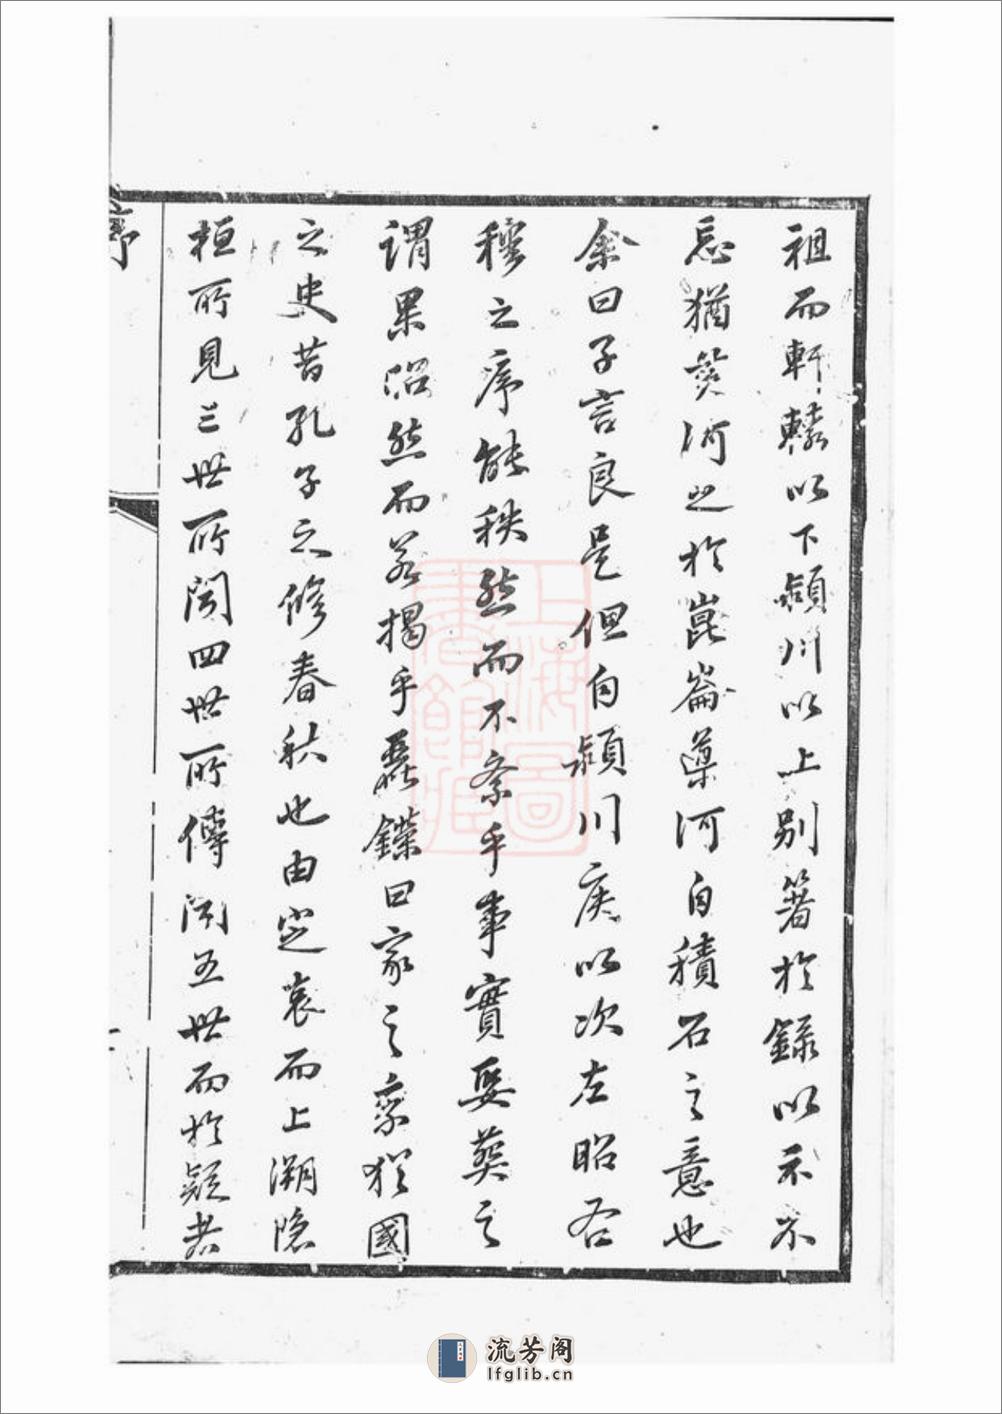 祖而軒轅以下潁川以上別著於錄以示不
忘猶溯河之於崑崙導河自積石之意也
余曰子言良是但自潁川侯以次左昭右
穆之序能秩然而不紊乎事實娶葬之
謂果炤然而若揭乎聶鑅曰家之乘猶國
之史昔孔子之修春秋也由定哀而上溯隱
桓所見三世所聞四世所傳聞五世而於疑者
序
上海圖書館藏
流芳阁
lfglib.cn